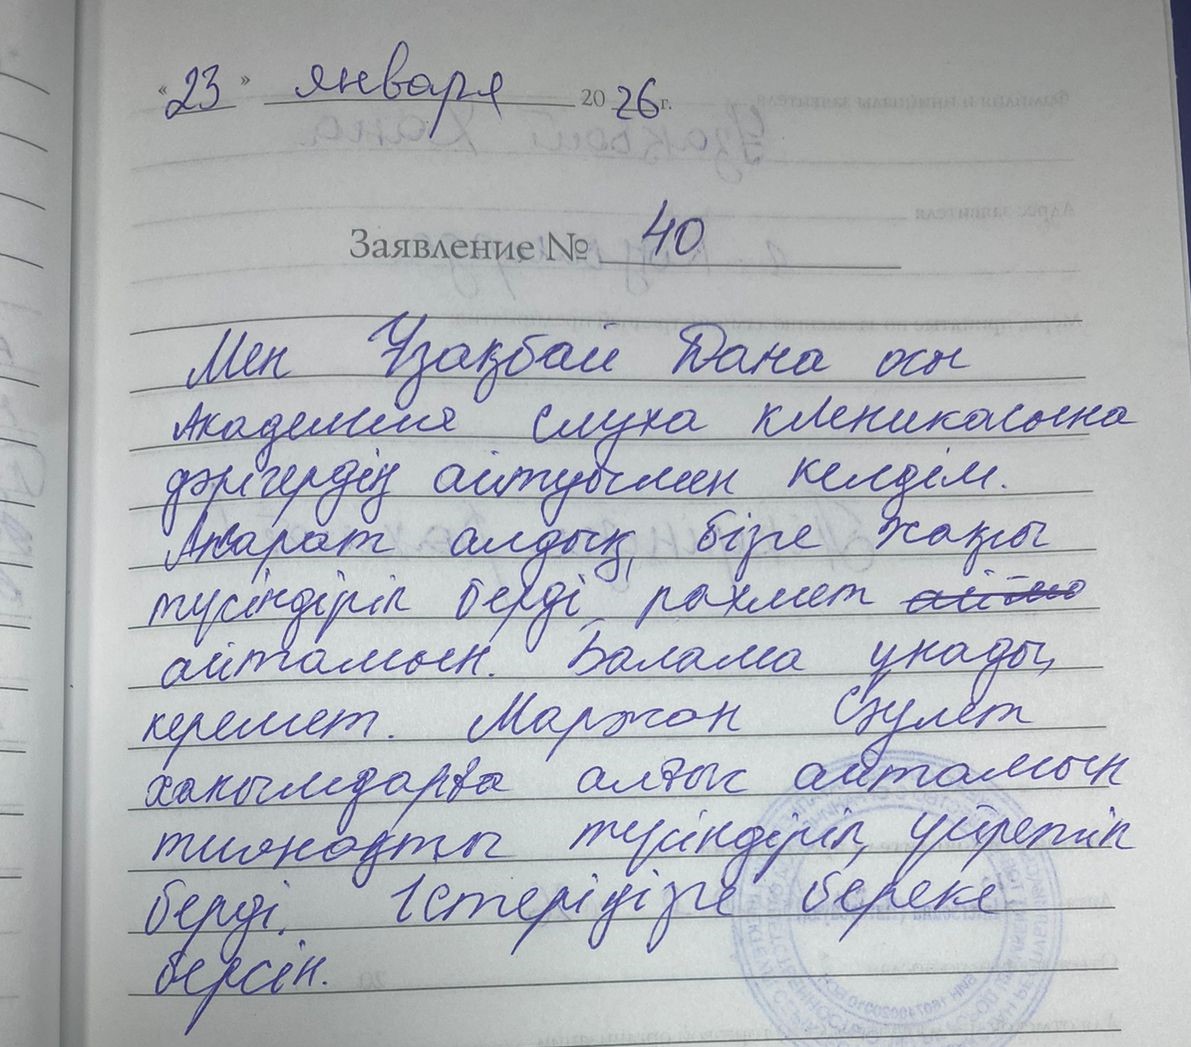 «23» января 2026г.
Заявление № 40
Мен Ұзақбай Дана осы
Академия слуха клиникасына
дәрігердің айтуымен келдім.
Ақпарат алдық, бізге жақсы
түсіндіріп берді, рахмет
айтамын. Балама ұнады,
керемет. Маржан Сәулет
ханымдарға алғыс айтамын
тиянақты түсіндіріп, үйретіп
берді. Істеріңізге береке
берсін.